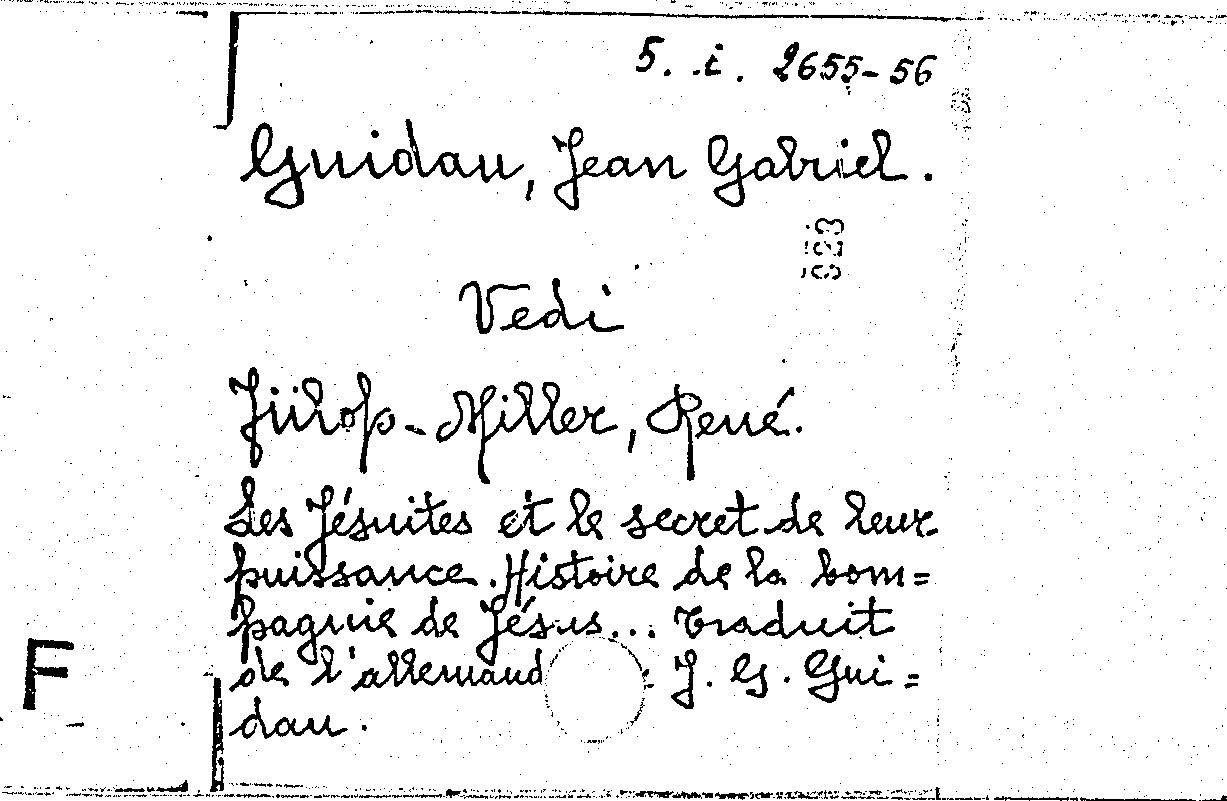 5. i. 2655-56
Guidau, Jean Gabriel.
Vedi
Fülop-Miller, René.
Les Jésuites et le secret de leur
puissance. Histoire de la Com=
pagnie de Jésus... Traduit
de l'allemand J. G. Gui=
dau.
F